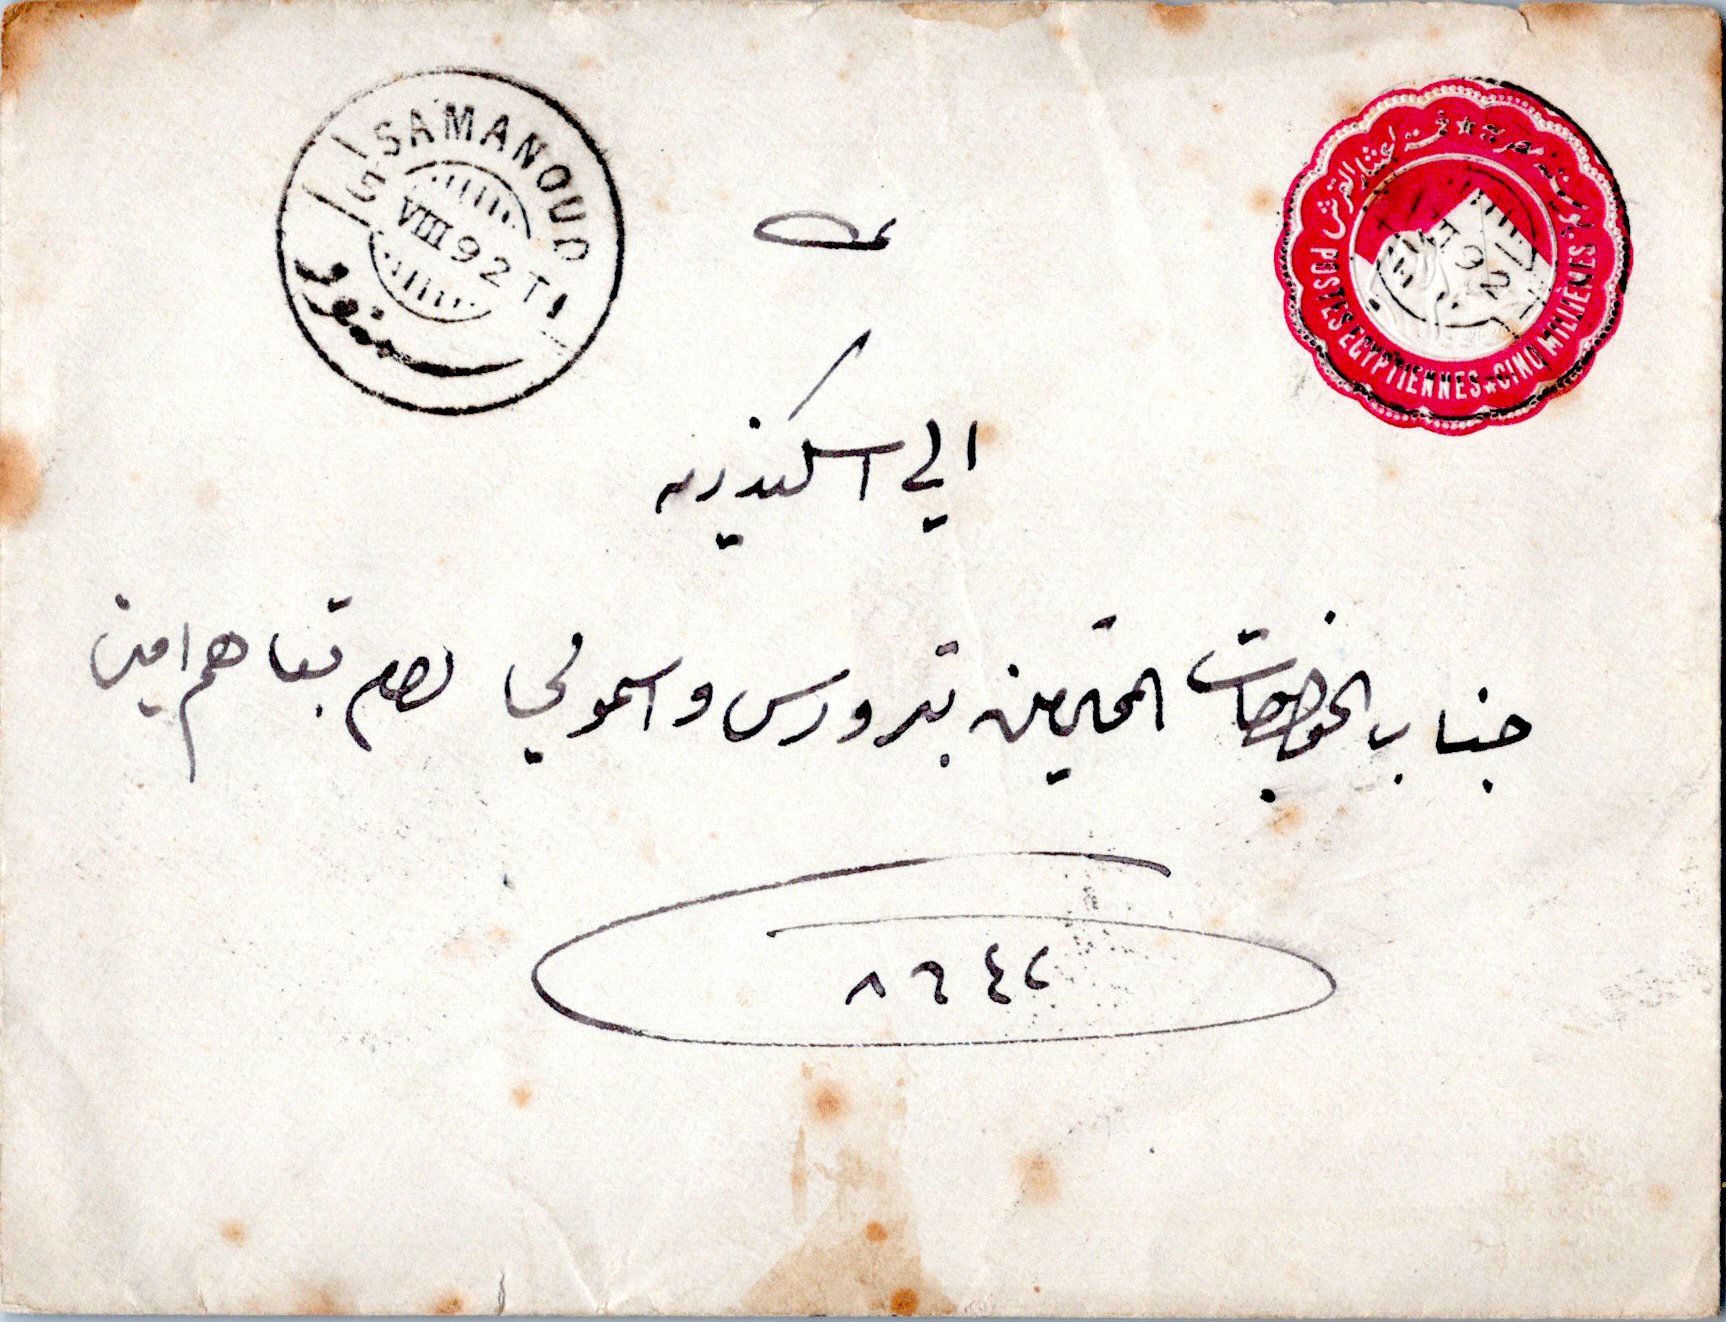 SAMANOUD
VIII 92 T I
سمنود
POSTES EGYPTIENNES ★ CINQ MILLIEMES
الي اسكندريه
جناب الخواجات المحترمين بتدورس واسمولي دام بقاهم امين
٨٦٤٢